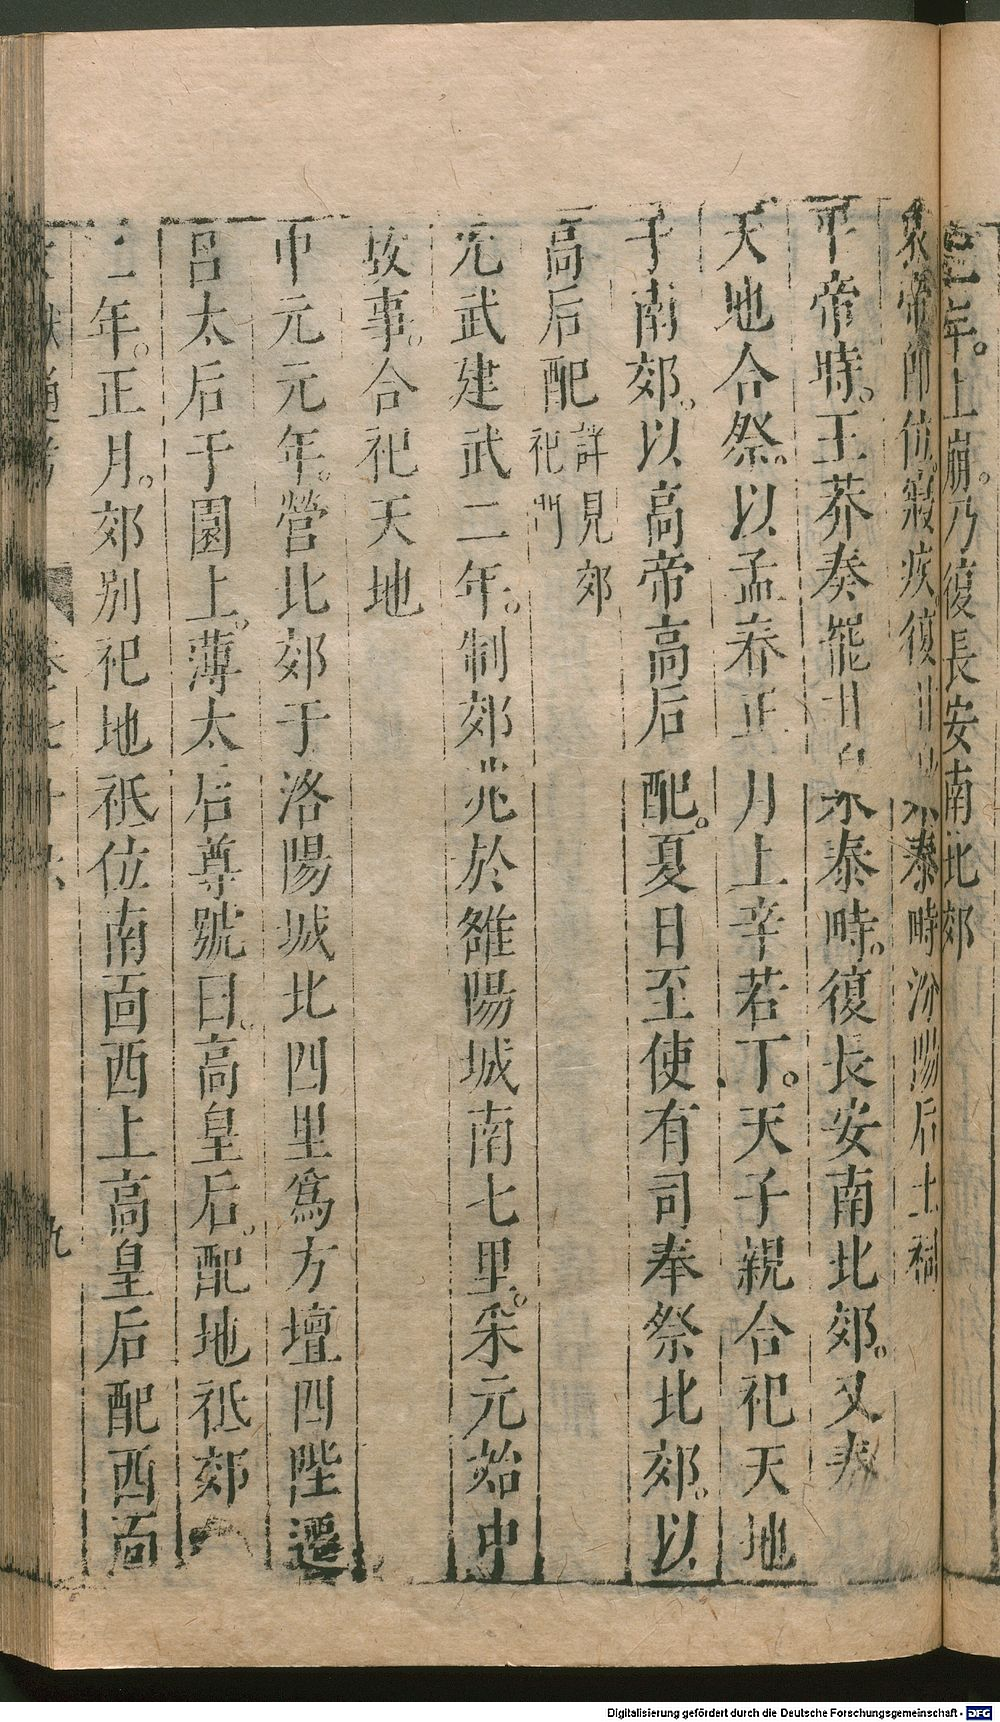 二年。上崩。乃復長安南北郊
哀帝卽位。寢疾。復甘泉泰畤汾陽后土祠
平帝時。王莽奏罷甘泉泰畤。復長安南北郊。又奏
天地合祭。以孟春正月上辛若丁。天子親合祀天地
于南郊。以高帝高后配。夏日至使有司奉祭北郊。以
高后配 詳見郊祀門
光武建武二年。制郊兆於雒陽城南七里。采元始中
故事。合祀天地
中元元年。營北郊于洛陽城北四里爲方壇四陛遷
呂太后于園上。薄太后尊號曰。高皇后。配地祇郊
二年。正月。郊別祀地祇位南面西上高皇后配西面
文獻通考
九
Digitalisierung gefördert durch die Deutsche Forschungsgemeinschaft - DFG